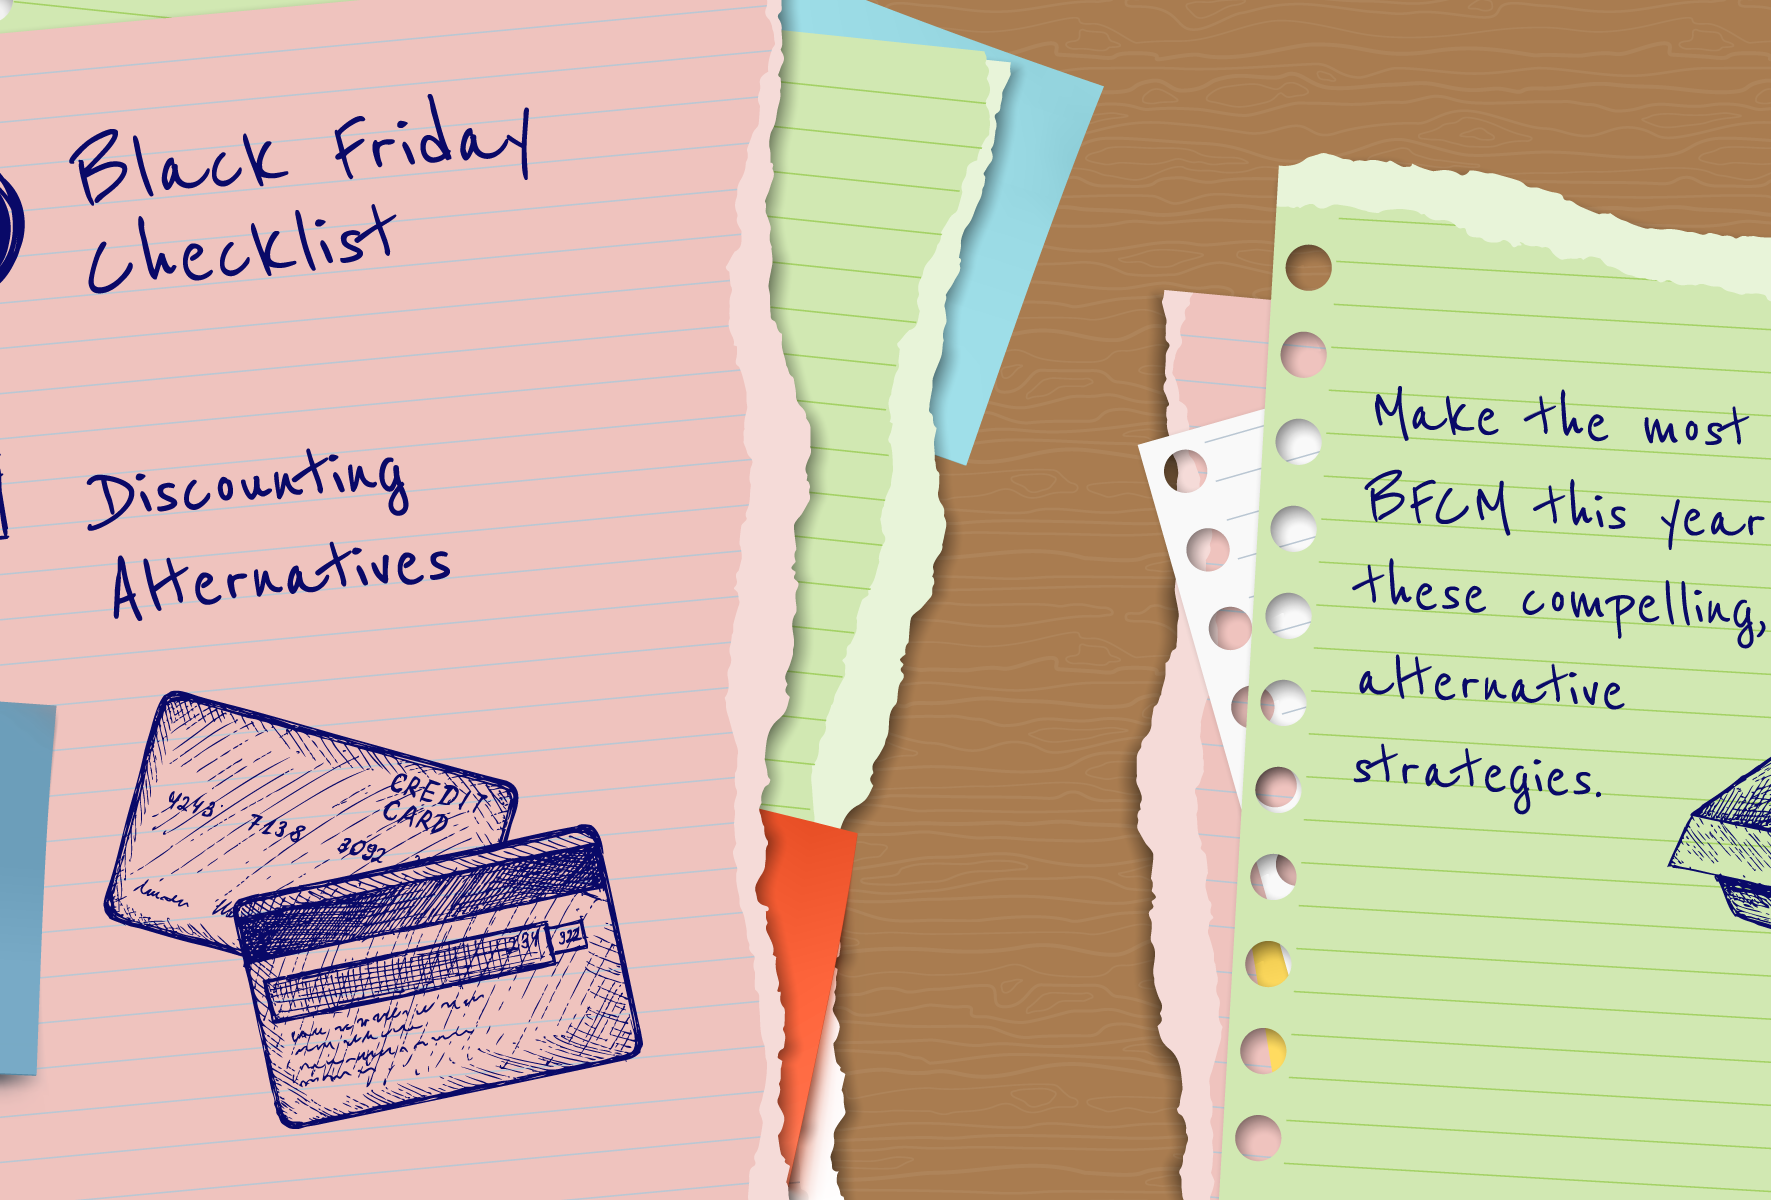 Black Friday
Checklist
Discounting
Alternatives
CREDIT
CARD
4243 7138 3092
234 922
Make the most
BFCM this year
these compelling,
alternative
strategies.